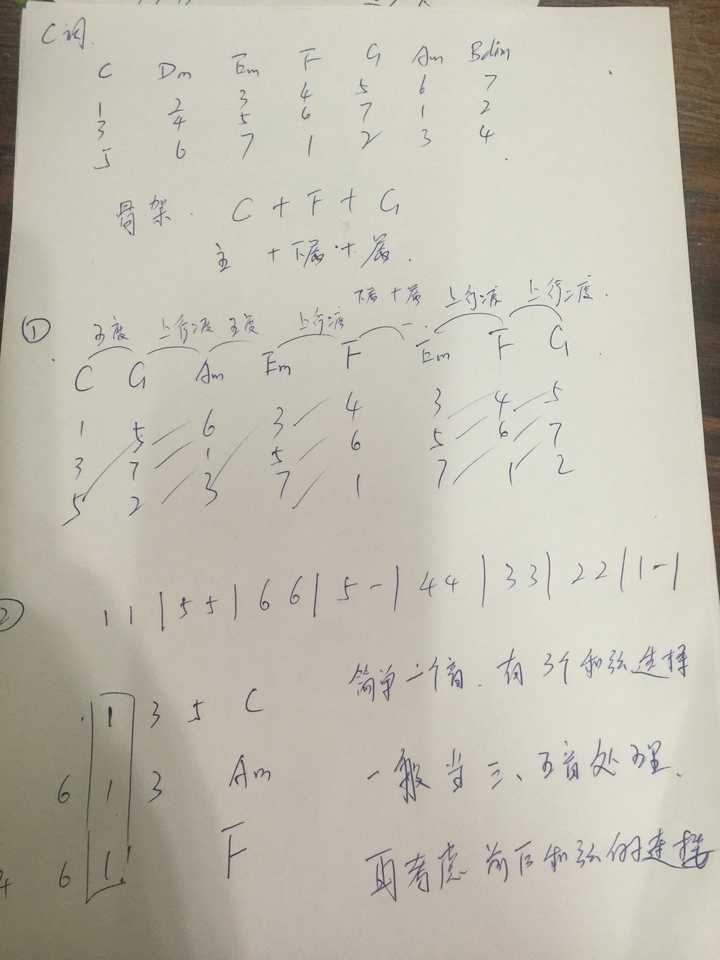 C调.
C Dm Em F G Am Bdim
1 2 3 4 5 6 7
3 4 5 6 7 1 2
5 6 7 1 2 3 4
骨架. C + F + G
主 + 下属 + 属.
① 五度 上行二度 五度 上行二度 下属+属 上行二度 上行二度.
C G Am Em F Em F G
1 5 6 3 4 3 4 5
3 7 1 5 6 5 6 7
5 2 3 7 1 7 1 2
② 1 1 | 5 5 | 6 6 | 5 - | 4 4 | 3 3 | 2 2 | 1 - |
简单一个音. 有3个和弦选择
1 3 5 C
6 1 3 Am 一般当三、五音处理.
4 6 1 F 再考虑前后和弦的连接